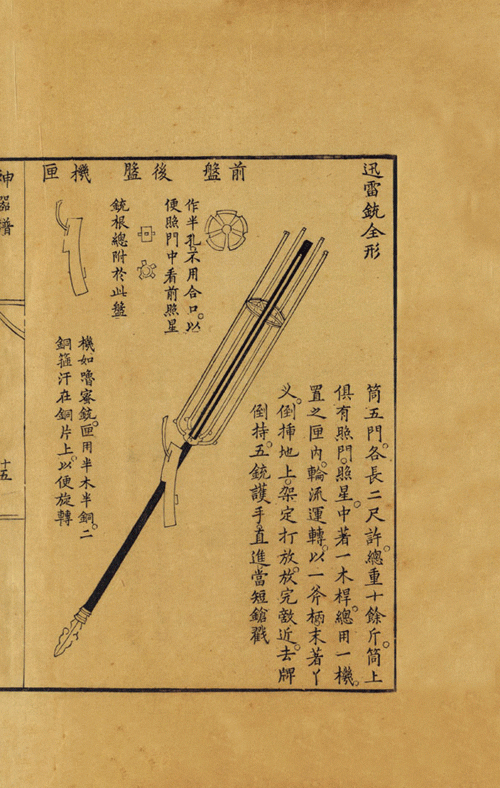 迅雷銃全形
筒五門。各長二尺許。總重十餘斤。筒上
俱有照門。照星。中著一木桿。總用一機。
置之匣內。輪流運轉。以一斧柄末著丫
义。倒揷地上。架定打放。放完敵近。去牌
倒持。五銃護手直進當短鎗戳
前盤
作半孔。不用合口。以
便照門中看前照星
後盤
銃根總附於此盤
機匣
機如嚕蜜銃。匣用半木半銅。二
銅箍汗在銅片上。以便旋轉
神器譜
十五